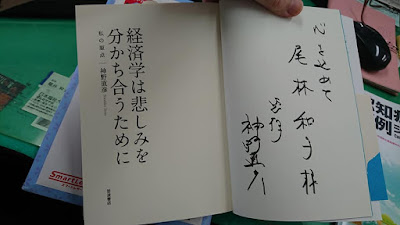 経済学は悲しみを
分かち合うために
私の原点
神野直彦
岩波書店
心をこめて
尾林和子様
神野直彦